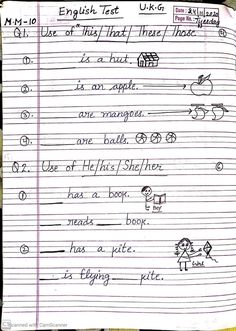 English Test U.K.G. Date: 24
M.M-10 Page No.
Q1. Use of "This/That/These/Those.
①. ____ is a hut.
②. ____ is an apple.
③. ____ are mangoes.
④. ____ are balls.
Q2. Use of He/his/She/her
① ____ has a book.
Boy
____ reads ____ book.
② ____ has a kite.
Girl
____ is flying ____ kite.
Scanned with CamScanner